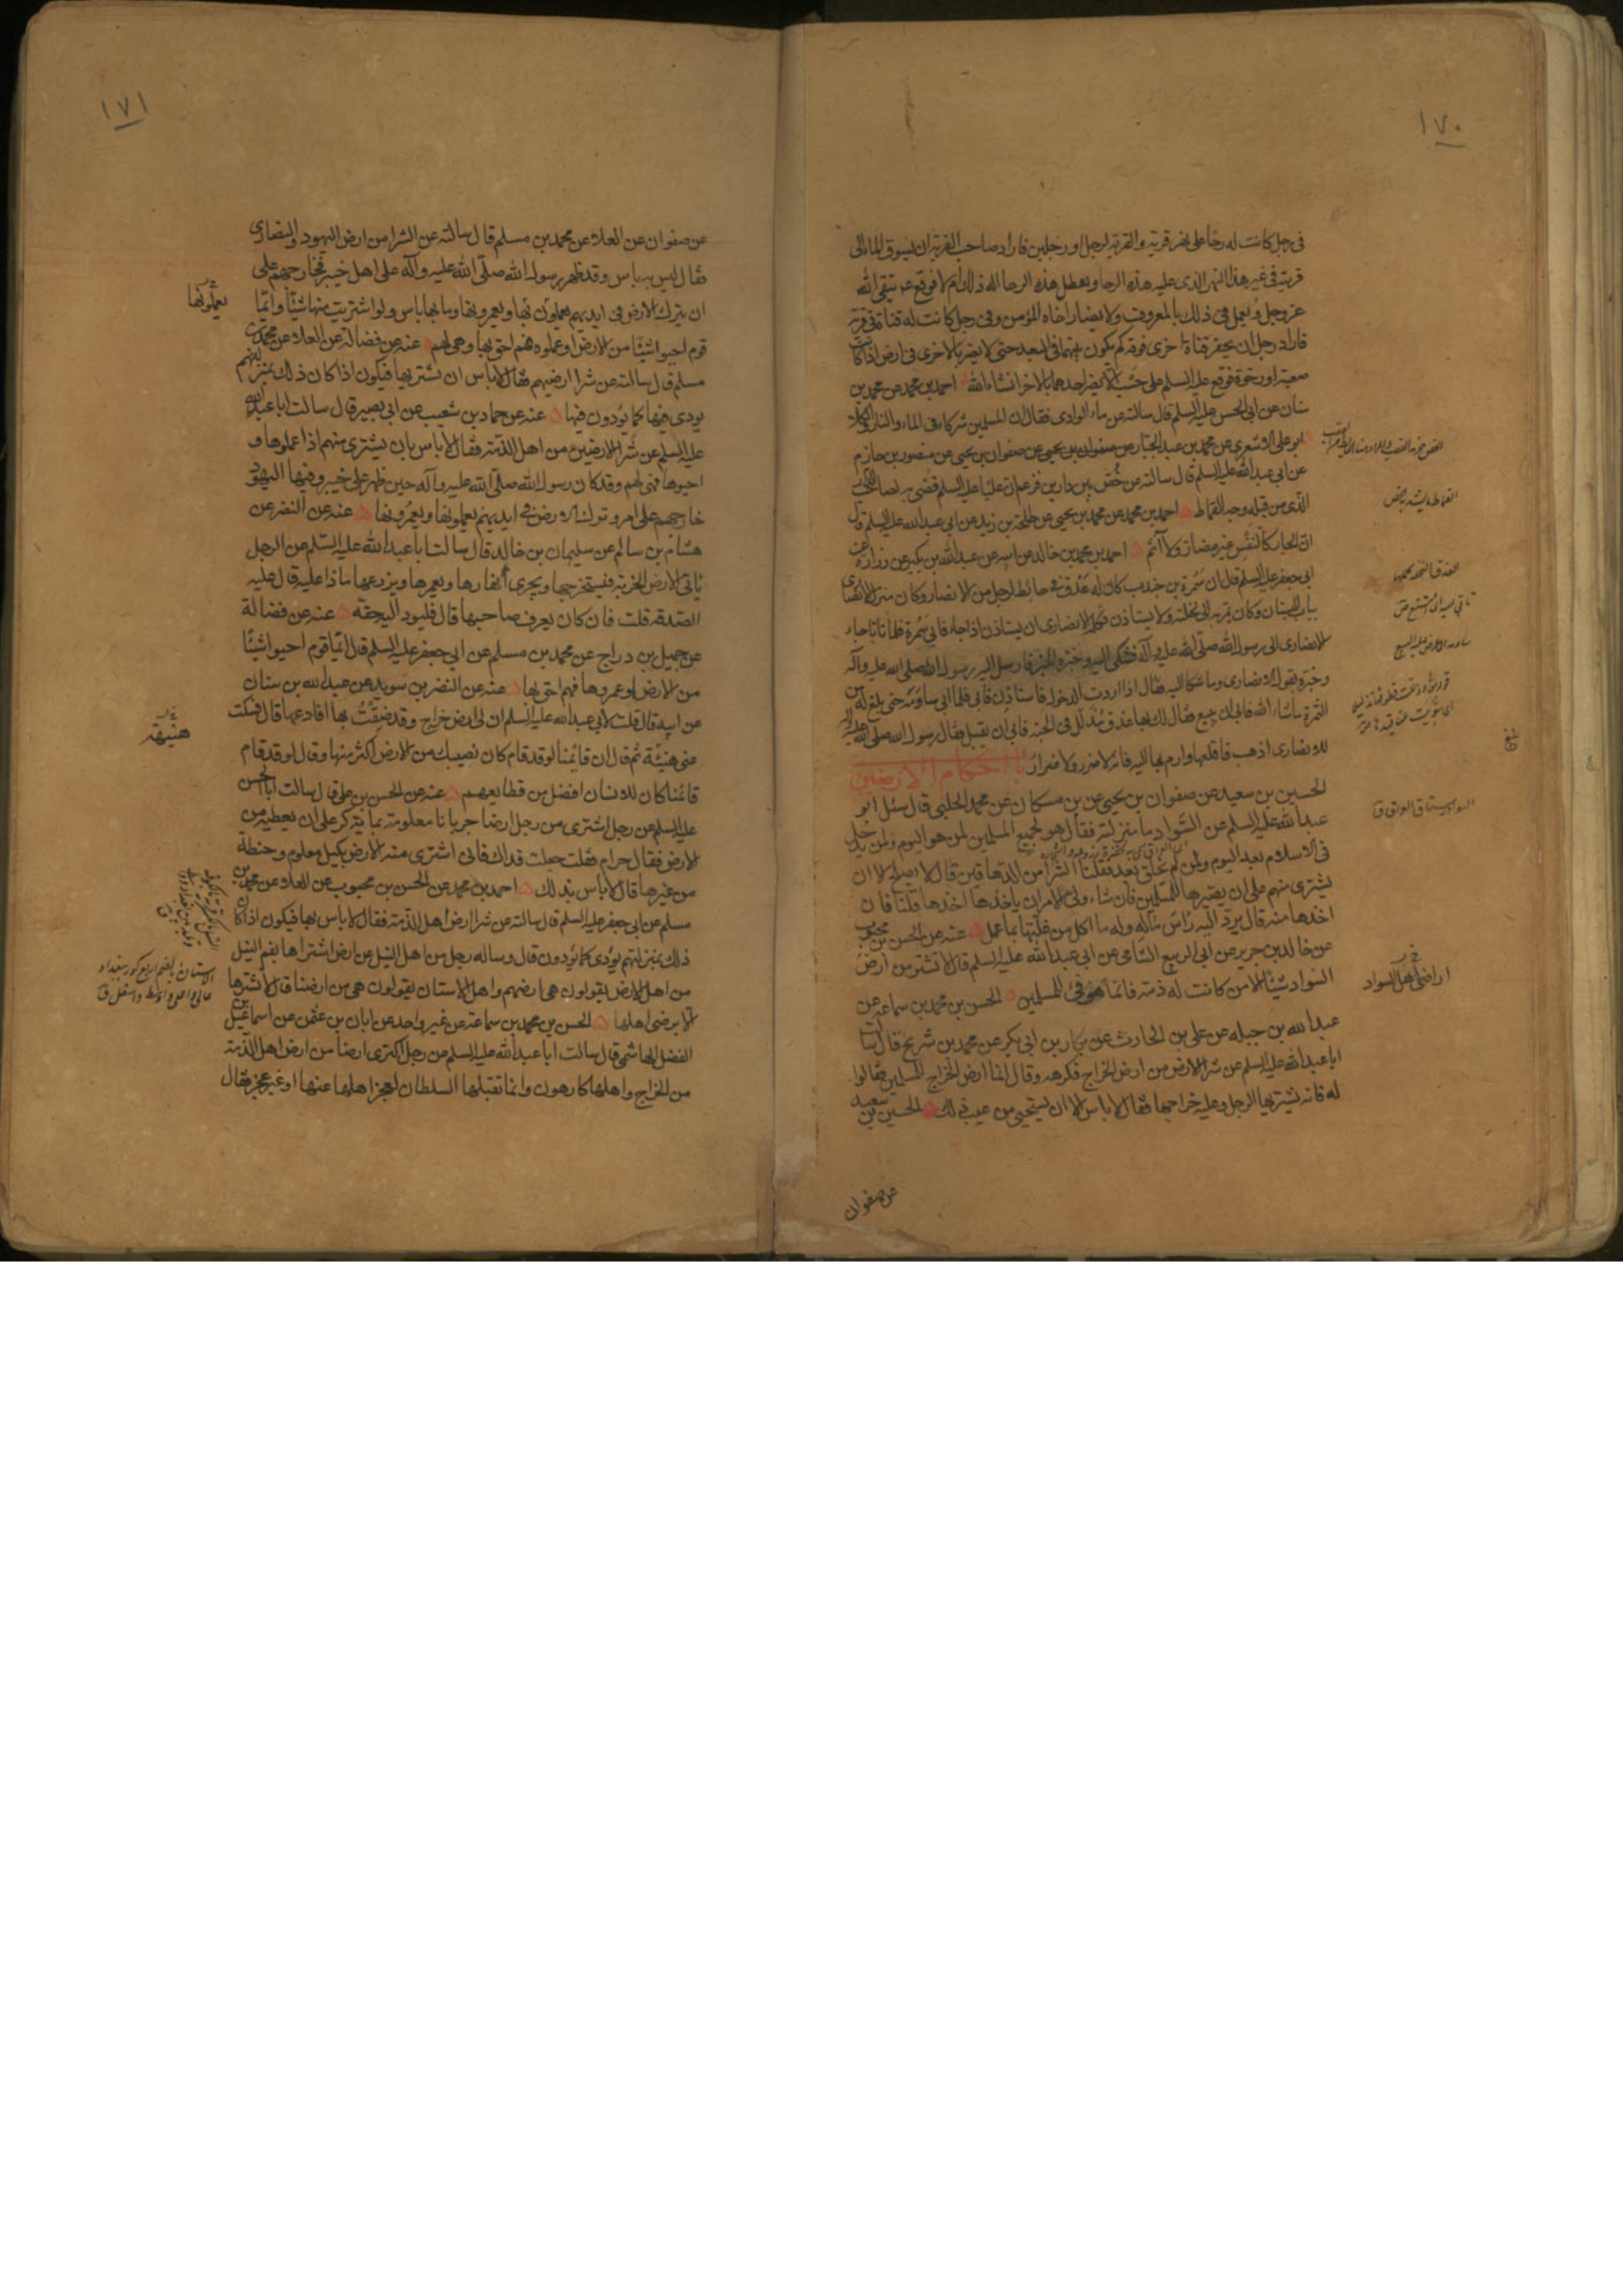 ١٧٠
في رجل كانت له رحا على نهر قرية والقرية لرجل او رجلين فاراد صاحب القرية ان يسوق الماء الى
قريته في غير هذا النهر الذي عليه هذه الرحا ويعطل هذه الرحا اله ذلك ام لا فوقع ع يتقي الله
عز وجل ويعمل في ذلك بالمعروف ولا يضار اخاه المؤمن وفي رجل كانت له قناة في قرية
فاراد رجل ان يحفر قناة اخرى فوقه كم يكون بينهما في البعد حتى لا يضر بالاخرى في ارض اذا كانت
صعبة او رخوة فوقع عليه السلم على حسب ان لا يضر احدهما بالاخر انشاء الله احمد بن محمد عن محمد بن
سنان عن ابي الحسن عليه السلم قال سالته عن ماء الوادي فقال ان المسلمين شركاء في الماء والنار والكلا
ابو علي الاشعري عن محمد بن عبد الجبار عن صفوان بن يحيى عن صفوان بن يحيى عن منصور بن حازم
عن ابي عبد الله عليه السلم قال سالته عن خص بين دارين فزعم ان عليا عليه السلم قضى به لصاحب الدار
الذي من قبله وجه القماط احمد بن محمد عن محمد بن يحيى عن طلحة بن زيد عن ابي عبد الله عليه السلم قال
ان الجار كالنفس غير مضار ولا آثم احمد بن محمد بن خالد عن ابيه عن عبد الله بن بكير عن زرارة عن
ابي جعفر عليه السلم قال ان سمرة بن جندب كان له عذق في حايط لرجل من الانصار وكان منزل الانصاري
بباب البستان وكان يمر به الى نخلته ولا يستاذن فكلمه الانصاري ان يستاذن اذا جاء فابى سمرة فلما تابا جاء
الانصاري الى رسول الله صلى الله عليه وآله فشكى اليه وخبره الخبر فارسل اليه رسول الله صلى الله عليه وآله
وخبره بقول الانصاري وما شكا اليه فقال اذا اردت الدخول فاستاذن فابى فلما ابى ساومه حتى بلغ له من
الثمن ما شاء الله فابى ان يبيع فقال لك بها عذق مذلل في الجنة فابى ان يقبل فقال رسول الله صلى الله عليه وآله
للانصاري اذهب فاقلعها وارم بها اليه فانه لا ضرر ولا ضرار باب احكام الارضين
الحسين بن سعيد عن صفوان بن يحيى عن بن مسكان عن محمد الحلبي قال سئل ابو
عبد الله عليه السلم عن السواد ما منزلته فقال هو لجميع المسلمين لمن هو اليوم ولمن يدخل
في الاسلام بعد اليوم ولمن لم يخلق بعد فقلنا الشرا من الدهاقين قال لا يصلح الا ان
يشترى منهم على ان يصيرها للمسلمين فان شاء ولي الامر ان ياخذها اخذها قلنا فان
اخذها منه قال يرد اليه راس ماله وله ما اكل من غلتها بما عمل عنه عن الحسن بن محبوب
عن خالد بن جرير عن ابي الربيع الشامي عن ابي عبد الله عليه السلم قال لا تشتر من ارض
السواد شيئا الا من كانت له ذمة فانما هو فئ للمسلمين الحسن بن محمد بن سماعة عن
عبد الله بن جبله عن علي بن الحارث عن بكار بن ابي بكر عن محمد بن شريح قال سالت
ابا عبد الله عليه السلم عن شرا الارض من ارض الخراج فكرهه وقال انما ارض الخراج للمسلمين فقالوا
له فانه يشتريها الرجل وعليه خراجها فقال لا باس الا ان يستحيي من عيب ذلك الحسين بن سعيد
عن صفوان
اراضي اهل السواد
١٧١
عن صفوان عن العلا عن محمد بن مسلم قال سالته عن الشرا من ارض اليهود والنصارى
فقال ليس به باس وقد ظهر رسول الله صلى الله عليه وآله على اهل خيبر فخارجهم على
ان يترك الارض في ايديهم يعملون بها ويعمرونها وما بها باس ولو اشتريت منها شيئا وايما
قوم احيوا شيئا من الارض او عملوه فهم احق بها وهي لهم عنه عن فضالة عن العلا عن محمد بن
مسلم قال سالته عن شرا ارضيهم فقال لا باس ان يشتريها فيكون اذا كان ذلك بمنزلتهم
يودي عنها كما يؤدون فيها عنه عن حماد بن شعيب عن ابي بصير قال سالت ابا عبد الله
عليه السلم عن شرا الارضين من اهل الذمة فقال لا باس بان يشترى منهم اذا عملوها و
احيوها فهي لهم وقد كان رسول الله صلى الله عليه وآله حين ظهر على خيبر وفيها اليهود
خارجهم على امر وترك الارض في ايديهم يعملونها ويعمرونها عنه عن النضر عن
هشام بن سالم عن سليمان بن خالد قال سالت ابا عبد الله عليه السلم عن الرجل
ياتي الارض الخربة فيستخرجها ويجري انهارها ويعمرها ويزرعها ماذا عليه قال عليه
الصدقة قلت فان كان يعرف صاحبها قال فليود اليه حقه عنه عن فضالة
عن جميل بن دراج عن محمد بن مسلم عن ابي جعفر عليه السلم قال ايما قوم احيوا شيئا
من الارض او عمروها فهم احق بها عنه عن النضر بن سويد عن عبد الله بن سنان
عن ابيه قال قلت لابي عبد الله عليه السلم ان لي ارض خراج وقد ضقت بها افادعها قال فسكت
عني هنيئة ثم قال ان قائمنا لو قد قام كان نصيبك من الارض اكثر منها وقال لو قد قام
قائمنا كان للانسان افضل من قطايعهم عنه عن الحسن بن علي قال سالت ابا الحسن
عليه السلم عن رجل اشترى من رجل ارضا جربانا معلومة بمائة كر على ان يعطيه من
الارض فقال حرام فقلت جعلت فداك فاني اشتري منه الارض بكيل معلوم وحنطة
من غيرها قال لا باس بذلك احمد بن محمد عن الحسن بن محبوب عن العلا عن محمد بن
مسلم عن ابي جعفر عليه السلم قال سالته عن شرا ارض اهل الذمة فقال لا باس بها فيكون اذا كان
ذلك بمنزلتهم يؤدي كما يؤدون قال وساله رجل من اهل النيل عن ارض اشتراها بفم النيل
من اهل الارض يقولون هي ارضهم واهل الاستان يقولون هي من ارضنا قال لا تشترها
الا برضى اهلها الحسن بن محمد بن سماعة عن غير واحد عن ابان بن عثمن عن اسماعيل بن
الفضل الهاشمي قال سالت ابا عبد الله عليه السلم عن رجل اكترى ارضا من ارض اهل الذمة
من الخراج واهلها كارهون وانما تقبلها السلطان لعجز اهلها عنها او غير عجز فقال
يعملونها
هنيهة